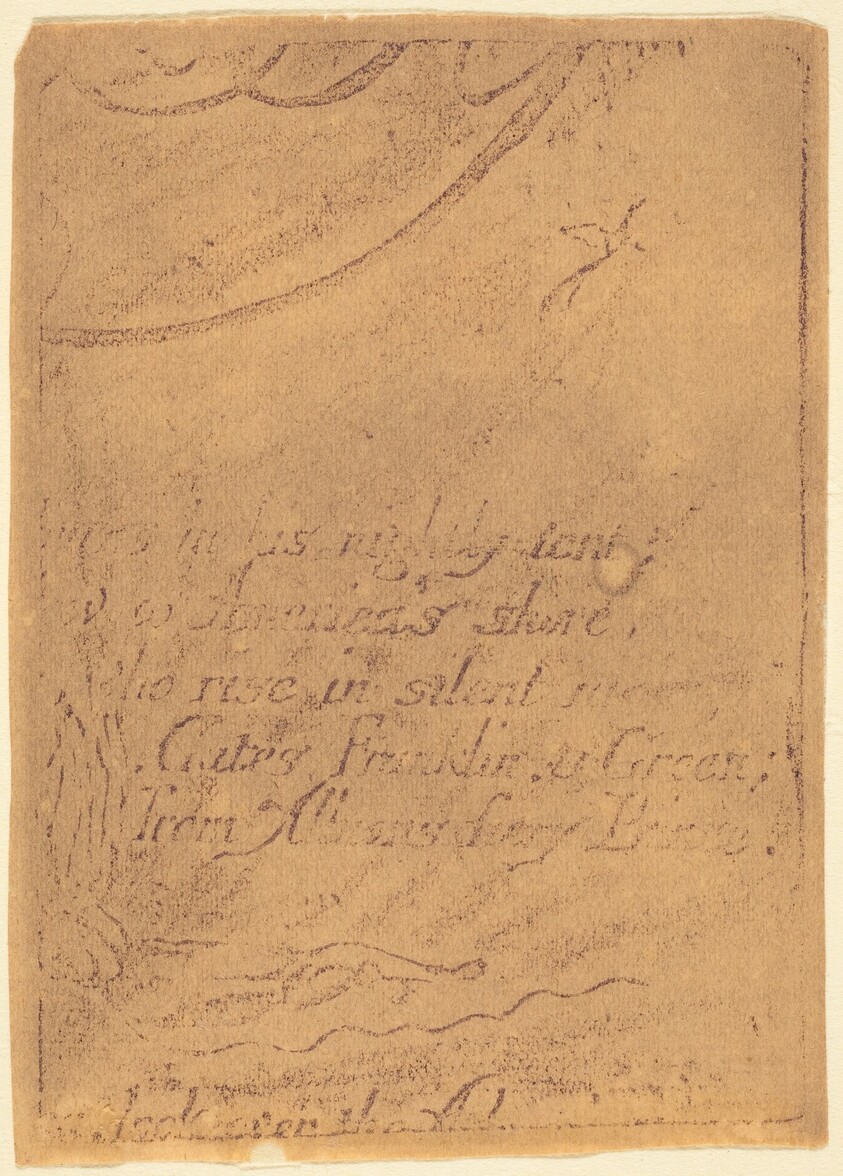 in his nightly tent;
to Americas shore,
who rise in silent
Gates, Franklin, & Green;
from Albions fiery Prince.
look over the